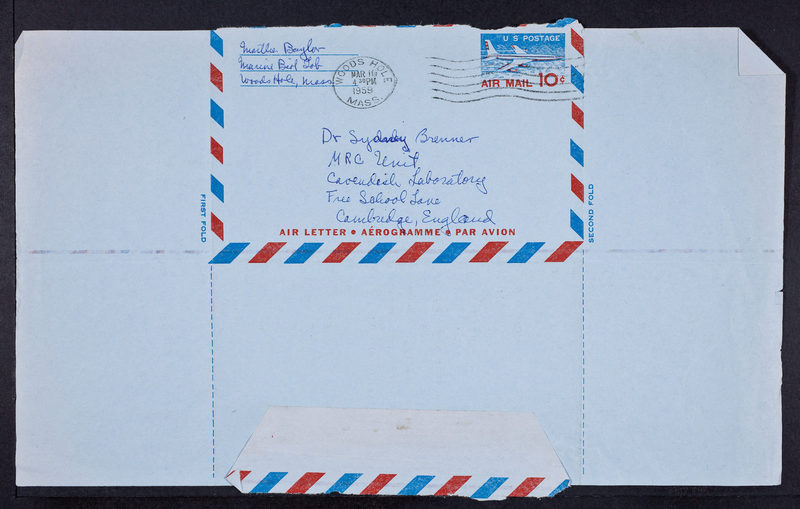 Martha Baylor
Marine Biol Lab
Woods Hole, Mass.
WOODS HOLE
MAR 16
4 30 PM
1959
MASS.
U S POSTAGE
AIR MAIL 10¢
Dr Sydney Brenner
MRC Unit
Cavendish Laboratory
Free School Lane
Cambridge, England
FIRST FOLD
SECOND FOLD
AIR LETTER • AÉROGRAMME • PAR AVION